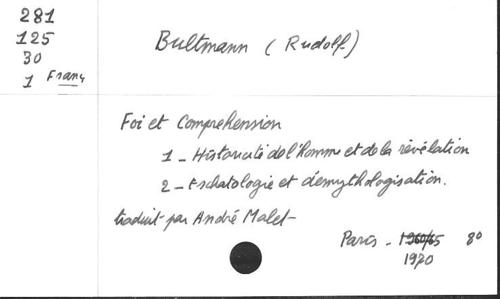 281
125
30
1 Franç
Bultmann (Rudolf)
Foi et Compréhension
1 - Historicité de l'homme et de la révélation
2 - Eschatologie et démythologisation.
traduit par André Malet -
Paris - 1960/65 8º
1970